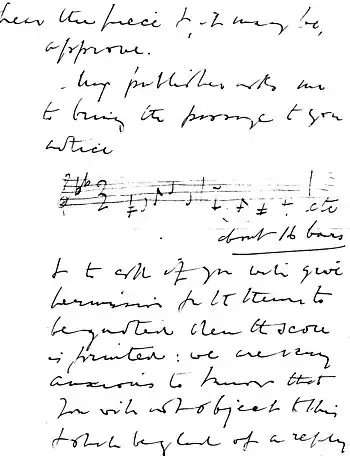 hear the piece & , it may be,
approve.
My publisher asks me
to bring the passage to your
notice
2 2 etc
about 16 bars
& to ask if you will give
permission for the theme to
be quoted when the score
is printed: we are very
anxious to know that
you will not object to this
& shall be glad of a reply